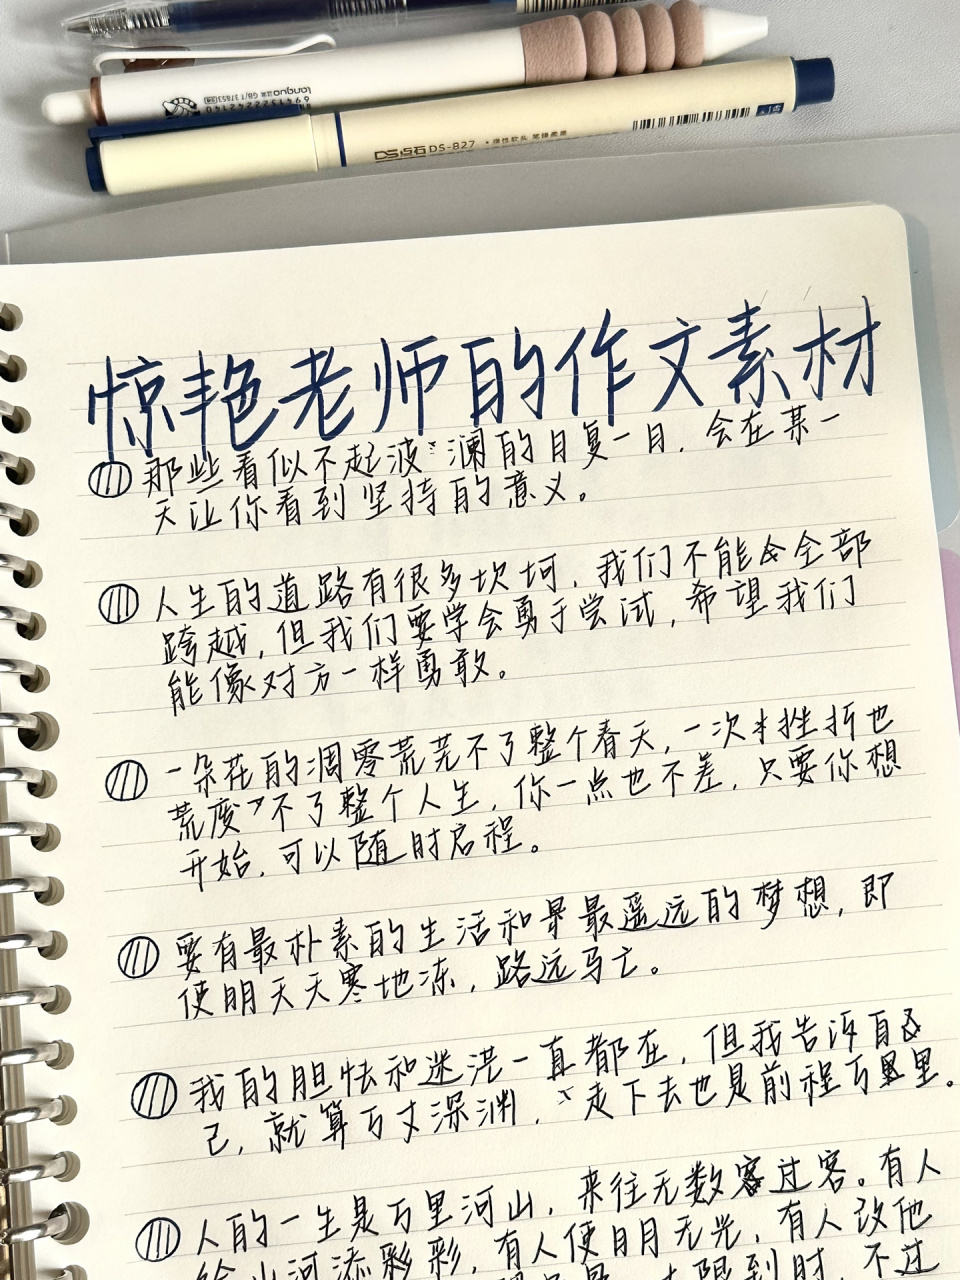 6941322242140
GB/T37853
DS点石 DS-827 ·弹性软头 笔锋柔美
惊艳老师的作文素材
那些看似不起波澜的日复一日，会在某一
天让你看到坚持的意义。
人生的道路有很多坎坷，我们不能全部
跨越，但我们要学会勇于尝试，希望我们
能像对方一样勇敢。
一朵花的凋零荒芜不了整个春天，一次挫折也
荒废不了整个人生，你一点也不差，只要你想
开始，可以随时启程。
要有最朴素的生活和最遥远的梦想，即
使明天天寒地冻，路远马亡。
我的胆怯和迷茫一直都在，但我告诉自
己，就算万丈深渊，走下去也是前程万里。
人的一生是万里河山，来往无数过客。有人
给山河添彩彩，有人使日月无光，有人改他
大限到时，不过